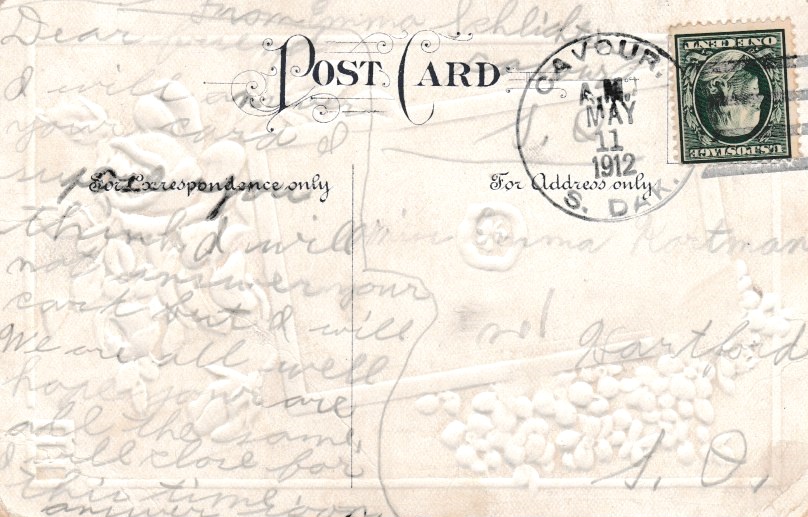 From Emma Schlicht
Cavour
S. D.
POST CARD
CAVOUR,
A.M.
MAY
11
1912
S. DAK.
ONE CENT
U.S. POSTAGE
For Correspondence only
For Address only
Dear
I will ans
your card I
suppose you
think I will
not answer your
card but I will
We are all well
hope your are
all the same
I will close for
this time.
answer soon
Miss Emma Hartman
Hartford
S. D.